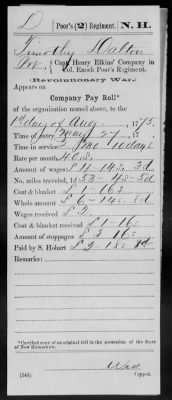 D Poor's (2) Regiment. N. H.
Timothy Dalton
Capt. Henry Elkins' Company in
Col. Enoch Poor's Regiment.
(Revolutionary War.)
Appears on
Company Pay Roll*
of the organization named above, to the
1st day of Aug 1775.
Time of entry May 27
Time in service
Rate per month 40 S.
Amount of wages
No. miles traveled,
Coat & blanket £1-16
Whole amount £6-
Wages received £2
Coat & blanket received £1-16
Amount of stoppages £3 16
Paid by S. Hobart
Remarks:
*Certified copy of an original roll in the possession of the State
of New Hampshire.
(545) Copyist.